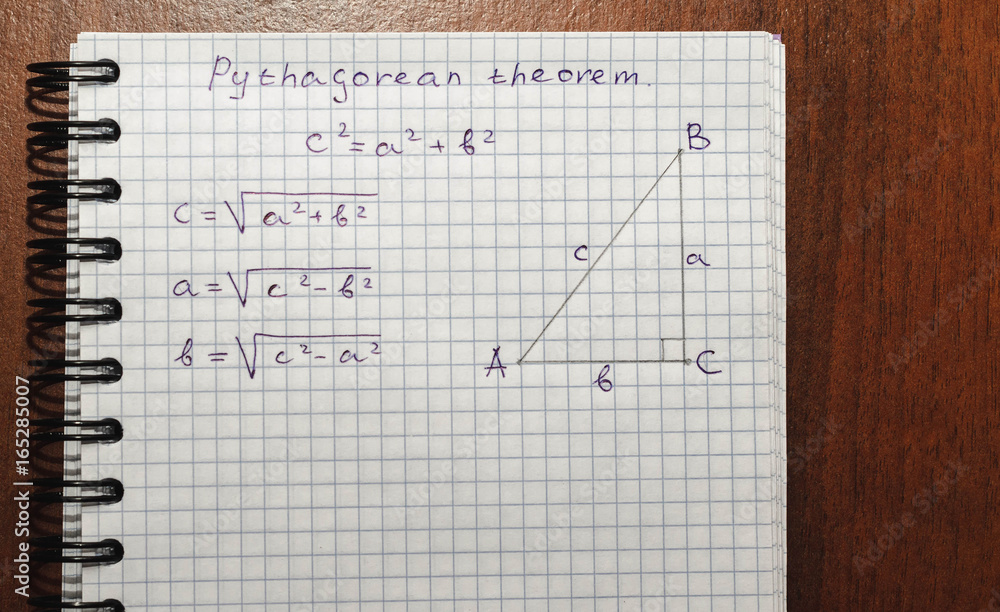 Pythagorean theorem.
c² = a² + b²
c = √(a² + b²)
a = √(c² - b²)
b = √(c² - a²)
B
c
a
A
b
C
Adobe Stock | #165285007